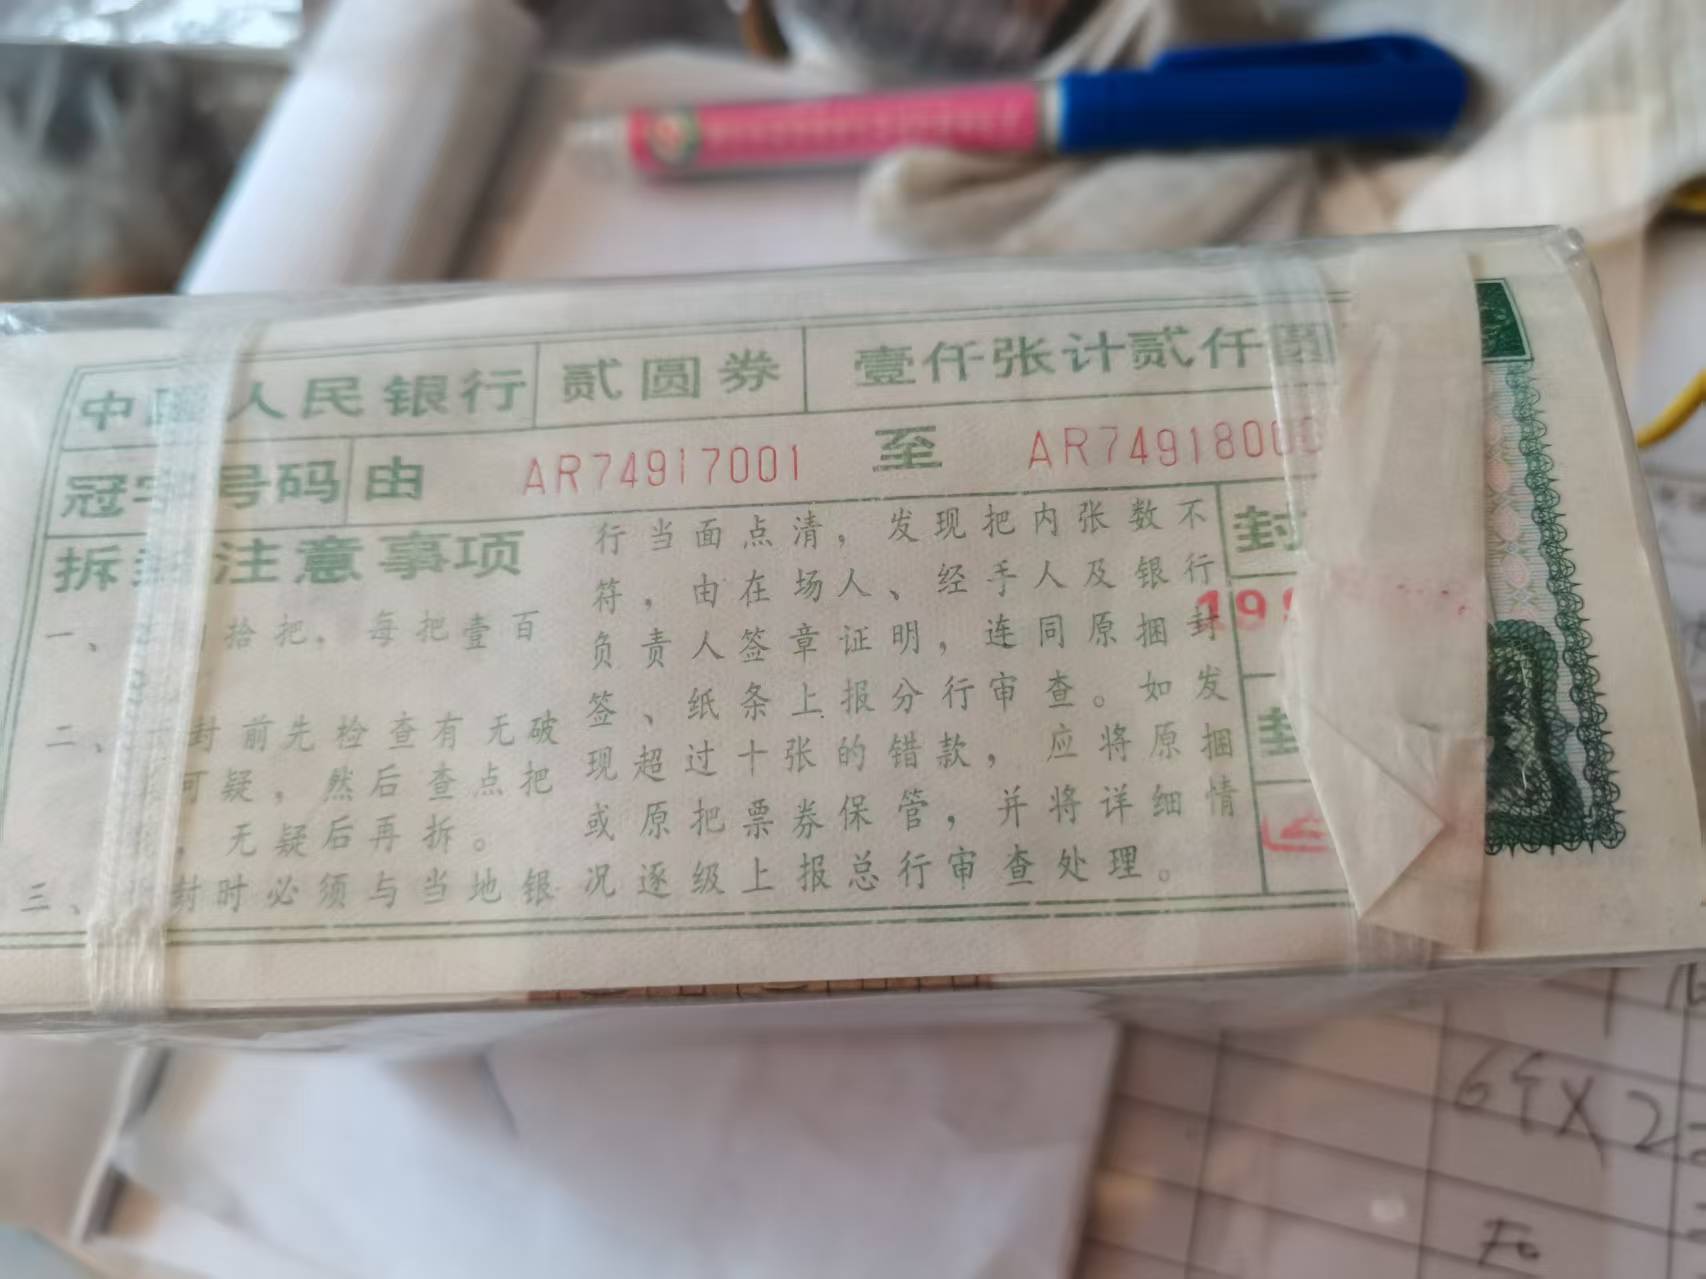 中 人民银行 贰圆券 壹仟张计贰仟圆
冠字号码 由 AR74917001 至 AR7491800
拆 注意事项
一、 拾把，每把壹百
二、 封前先检查有无破
可疑，然后查点把
，无疑后再拆。
三、 封时必须与当地银
行当面点清，发现把内张数不
符，由在场人、经手人及银行
负责人签章证明，连同原捆封
签、纸条上报分行审查。如发
现超过十张的错款，应将原捆
或原把票券保管，并将详细情
况逐级上报总行审查处理。
封
199
封
6千X2